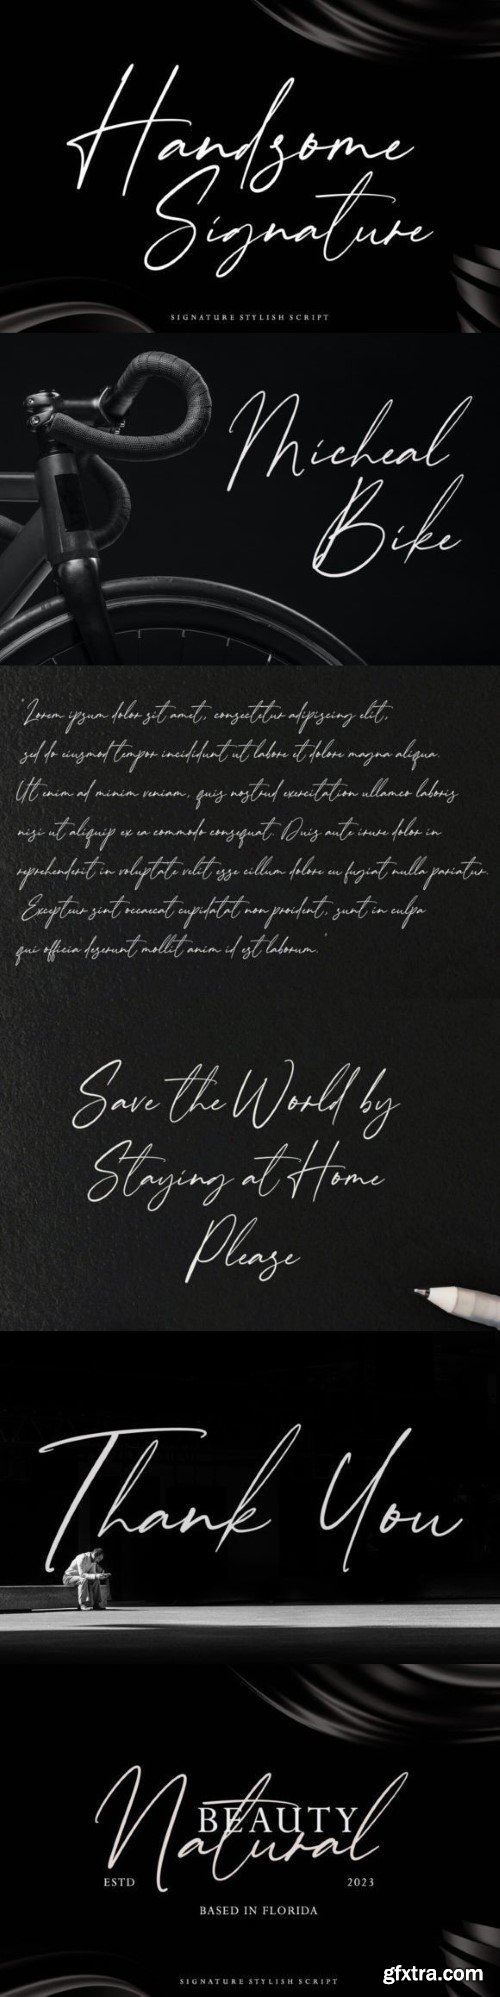 Handsome
Signature
SIGNATURE STYLISH SCRIPT
Micheal
Bike
"Lorem ipsum dolor sit amet, consectetur adipiscing elit,
sed do eiusmod tempor incididunt ut labore et dolore magna aliqua.
Ut enim ad minim veniam, quis nostrud exercitation ullamco laboris
nisi ut aliquip ex ea commodo consequat. Duis aute irure dolor in
reprehenderit in voluptate velit esse cillum dolore eu fugiat nulla pariatur.
Excepteur sint occaecat cupidatat non proident, sunt in culpa
qui officia deserunt mollit anim id est laborum."
Save the World by
Staying at Home
Please
Thank You
BEAUTY
Natural
ESTD 2023
BASED IN FLORIDA
SIGNATURE STYLISH SCRIPT
gfxtra.com